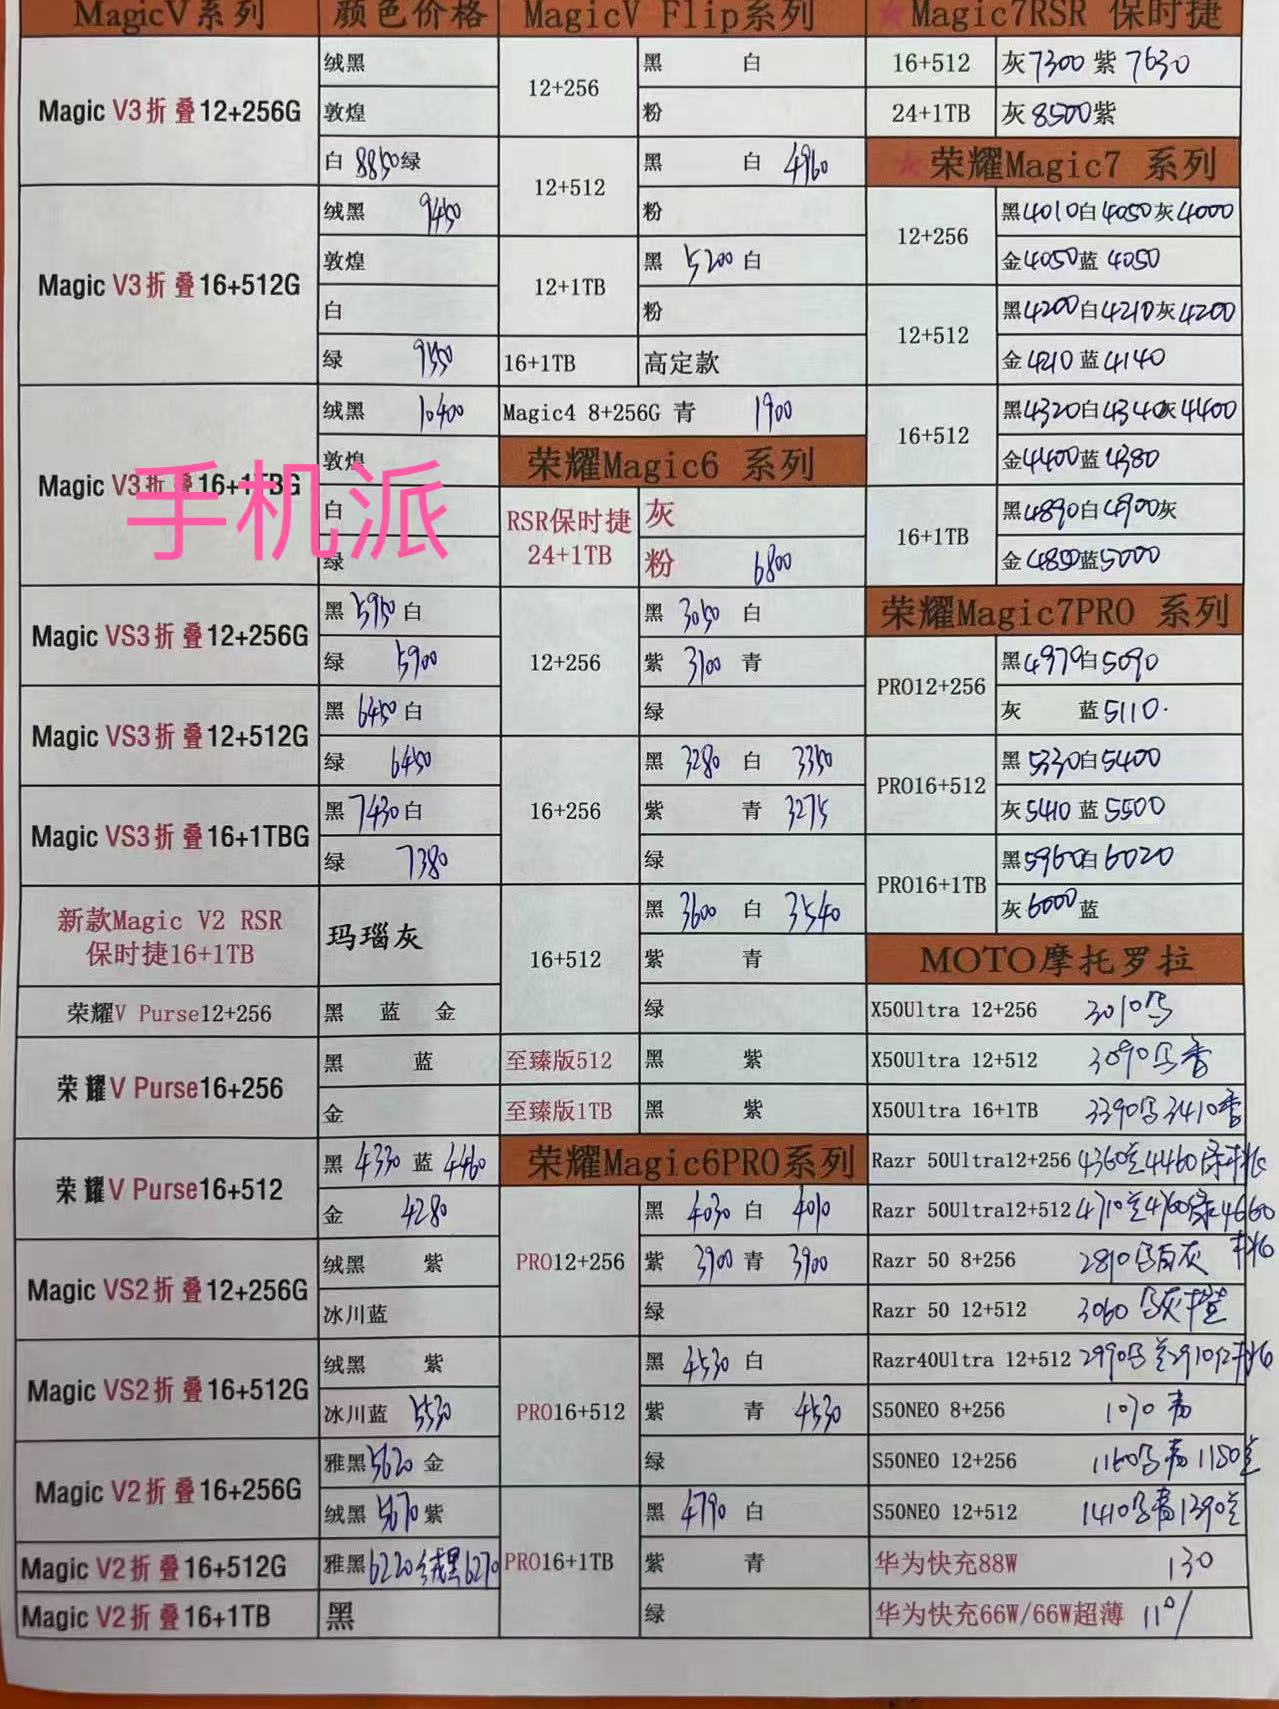 MagicV系列 颜色价格
Magic V3折叠12+256G
绒黑
敦煌
白 8850 绿
Magic V3折叠16+512G
绒黑 9450
敦煌
白
绿 9550
Magic V3折叠16+1TBG
绒黑 10400
敦煌
白
绿
手机派
Magic VS3折叠12+256G
黑 5950 白
绿 5900
Magic VS3折叠12+512G
黑 6450 白
绿 6450
Magic VS3折叠16+1TBG
黑 7430 白
绿 7380
新款Magic V2 RSR
保时捷16+1TB
玛瑙灰
荣耀V Purse12+256
黑 蓝 金
荣耀V Purse16+256
黑 蓝
金
荣耀V Purse16+512
黑 4330 蓝 4460
金 4280
Magic VS2折叠12+256G
绒黑 紫
冰川蓝
Magic VS2折叠16+512G
绒黑 紫
冰川蓝 5530
Magic V2折叠16+256G
雅黑 5620 金
绒黑 5670 紫
Magic V2折叠16+512G
雅黑 6220 绒黑 6270
Magic V2折叠16+1TB
黑
MagicV Flip系列
12+256
黑 白
粉
12+512
黑 白 4960
粉
12+1TB
黑 5200 白
粉
16+1TB 高定款
Magic4 8+256G 青 1900
荣耀Magic6 系列
RSR保时捷
24+1TB
灰
粉 6800
12+256
黑 3050 白
紫 3100 青
绿
16+256
黑 3280 白 3350
紫 青 3275
绿
16+512
黑 3600 白 3540
紫 青
绿
至臻版512 黑 紫
至臻版1TB 黑 紫
荣耀Magic6PRO系列
PRO12+256
黑 4030 白 4010
紫 3900 青 3900
绿
PRO16+512
黑 4530 白
紫 青 4530
绿
PRO16+1TB
黑 4790 白
紫 青
绿
★Magic7RSR 保时捷
16+512 灰7300 紫 7630
24+1TB 灰 8500紫
★荣耀Magic7 系列
12+256
黑4010白4050灰4000
金4050蓝 4050
12+512
黑4200白4210灰4200
金4210蓝4140
16+512
黑4320白4340灰4400
金4400蓝4380
16+1TB
黑4890白4900灰
金4850蓝5000
荣耀Magic7PRO 系列
PRO12+256
黑4970白5090
灰 蓝5110
PRO16+512
黑5330白5400
灰5410 蓝5500
PRO16+1TB
黑5960白6020
灰6000蓝
MOTO摩托罗拉
X50Ultra 12+256 3010
X50Ultra 12+512 3090
X50Ultra 16+1TB 3390 3410
Razr 50Ultra12+256 4360 4460
Razr 50Ultra12+512 4710 4760 4660
Razr 50 8+256 2810
Razr 50 12+512 3060
Razr40Ultra 12+512 2990 2910
S50NEO 8+256 1070
S50NEO 12+256 1160 1180
S50NEO 12+512 1410 1390
华为快充88W 130
华为快充66W/66W超薄 110